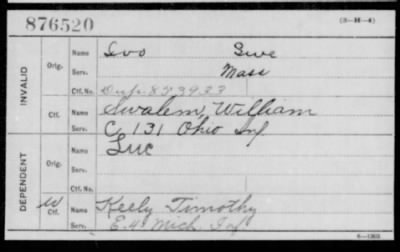 876520 (3-H-4)
INVALID
Orig.
Name
Serv. Mass
Ctf. No. Dup. 873933
Ctf.
Name Swalem, William
Serv. C, 131 Ohio Inf
DEPENDENT
Orig.
Name
Serv.
Ctf. No.
W
Ctf.
Name Keely Timothy
Serv. E. 4 Mich. Inf